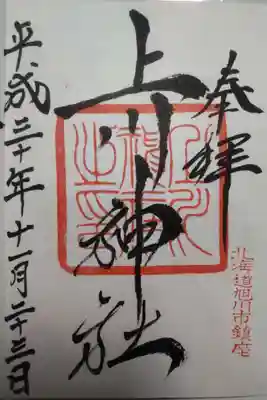 奉拝
北海道旭川市鎮座
上川神社
平成三十年十一月二十三日